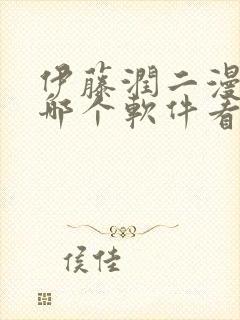 伊藤潤二漫
哪个軟件看
侯佳